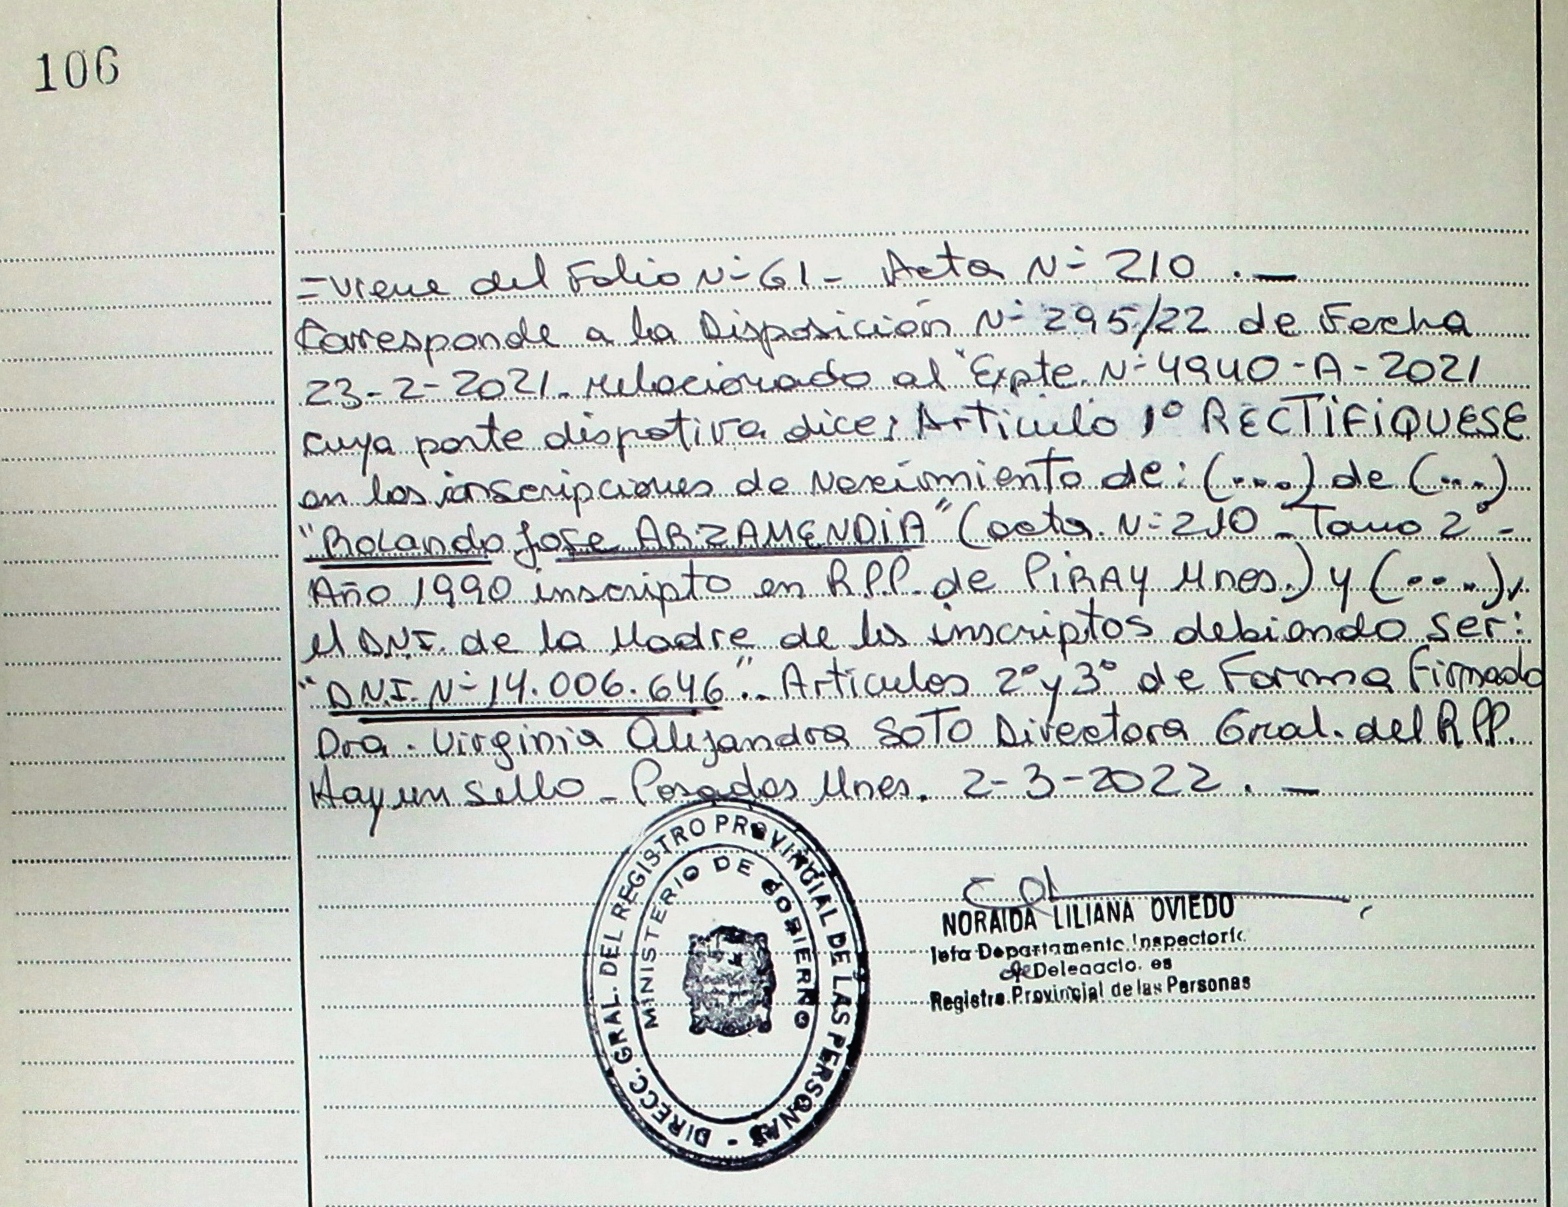 106
=Viene del Folio Nº 61- Acta Nº 210 .—
Corresponde a la Disposición Nº 295/22 de Fecha
23-2-2021. relacionado al "Expte. Nº 4940-A-2021
cuya parte dispotiva dice; Articulo 1º RECTIFIQUESE
en las inscripciones de Nacimiento de: (....) de (...)
"Rolando José ARZAMENDIA" (acta. Nº 210 - Tomo 2º -
Año 1990 inscripto en R.P.P. de PIRAY Mnes.) y (....),
el D.N.I. de la Madre de los inscriptos debiendo ser:
"D.N.I. Nº 14.006.646".- Articulos 2º y 3º de Forma Firmado
Dra. Virginia Alejandra SOTO Directora Gral. del R.P.P.
Hay un Sello - Posadas Mnes. 2-3-2022 . —
DIRECC. GRAL. DEL REGISTRO PROVINCIAL DE LAS PERSONAS -
MINISTERIO DE GOBIERNO
NORAIDA LILIANA OVIEDO
Jefa Departamento Inspectoria
de Delegacio es
Registro Provincial de las Personas